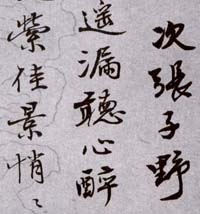 次張子野
遥漏聽心醉
縈佳景悄〻